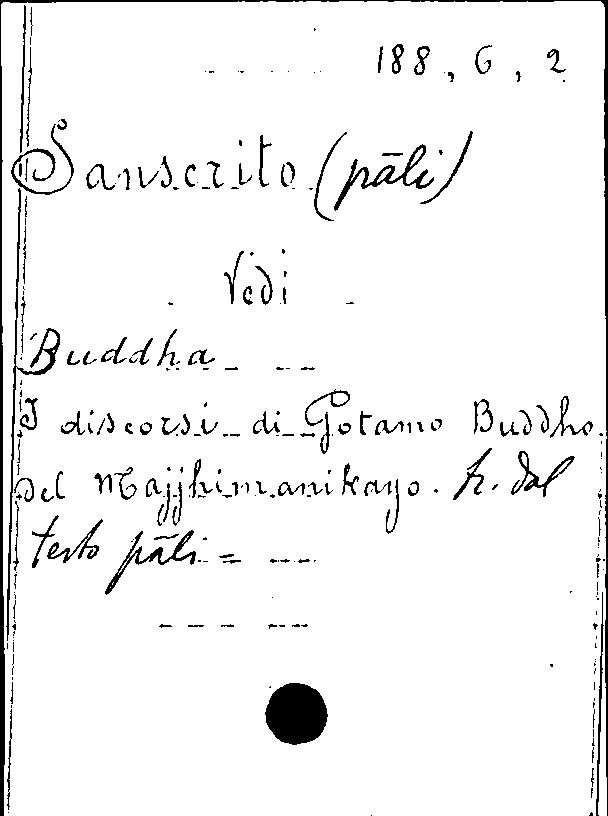 188, 6, 2
Sanscrito (pāli)
Vedi
Buddha
I discorsi di Gotamo Buddho
del Majjhimanikayo. tr. dal
testo pāli =